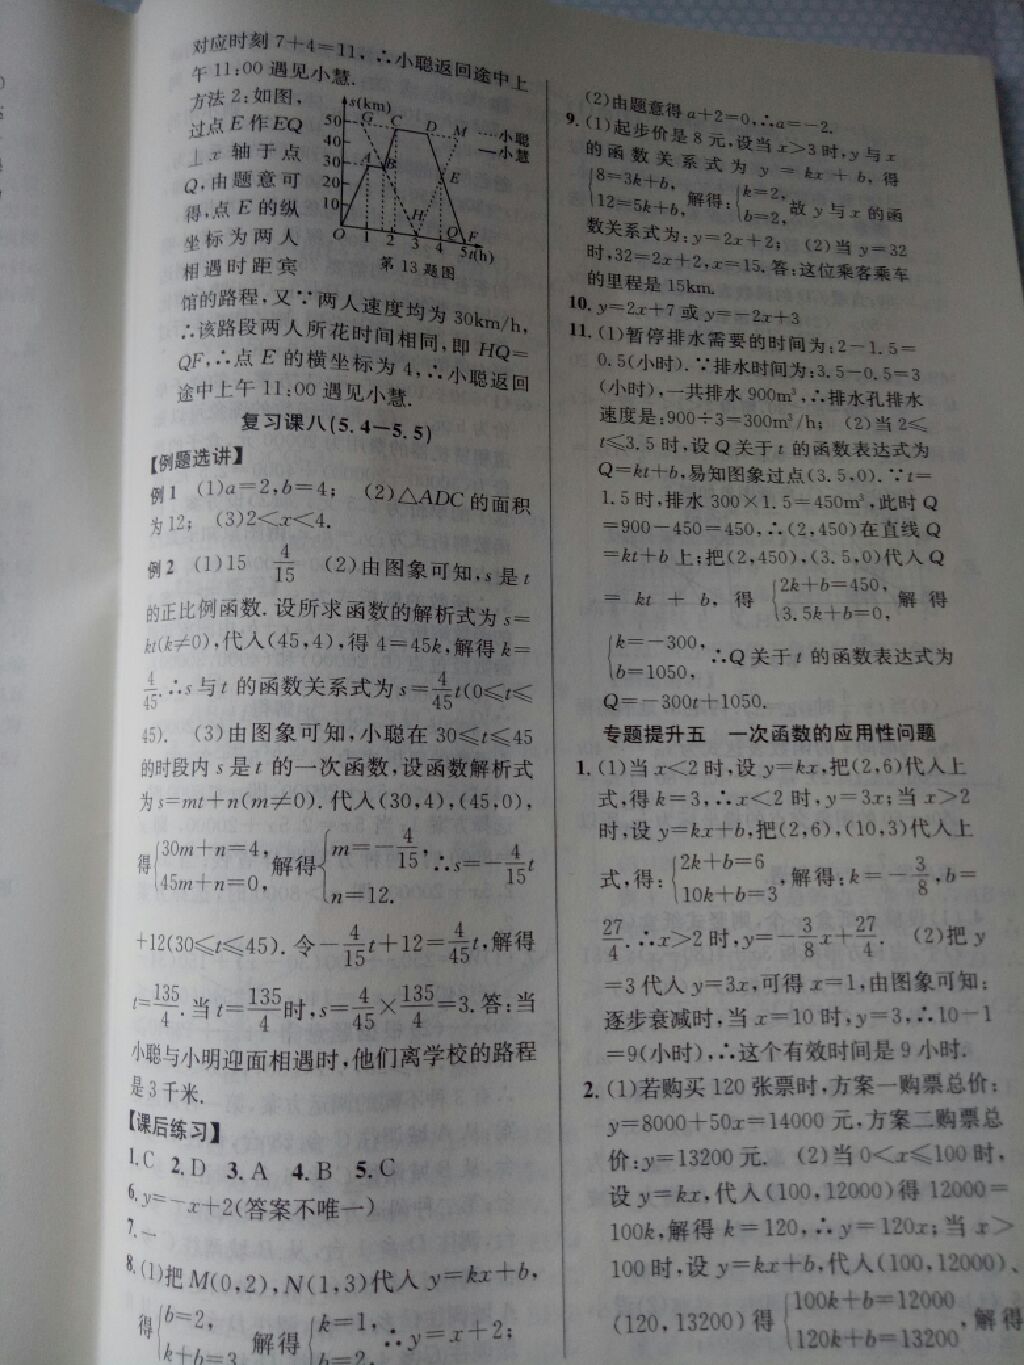 对应时刻 7+4=11, ∴小聪返回途中上
午 11:00 遇见小慧.
方法 2:如图,
过点 E 作 EQ
⊥x 轴于点
Q,由题意可
得,点 E 的纵
坐标为两人
相遇时距宾
s(km)
50 G C D M
40
30 A B
20 E
10 H
O 1 2 3 4 Q 5 F t(h)
小聪
小慧
第 13 题图
馆的路程,又∵两人速度均为 30km/h,
∴该路段两人所花时间相同,即 HQ=
QF,∴点 E 的横坐标为 4,∴小聪返回
途中上午 11:00 遇见小慧.
复习课八(5.4—5.5)
【例题选讲】
例1 (1)a=2,b=4; (2)△ADC 的面积
为12; (3)2<x<4.
例2 (1)15 4/15 (2)由图象可知,s 是 t
的正比例函数. 设所求函数的解析式为 s=
kt(k≠0),代入(45,4),得 4=45k,解得 k=
4/45.∴s 与 t 的函数关系式为 s=4/45t(0≤t≤
45). (3)由图象可知,小聪在 30≤t≤45
的时段内 s 是 t 的一次函数,设函数解析式
为 s=mt+n(m≠0). 代入(30,4),(45,0),
得{30m+n=4, 45m+n=0, 解得{m=-4/15, n=12. ∴s=-4/15t
+12(30≤t≤45). 令-4/15t+12=4/45t,解得
t=135/4.当 t=135/4时,s=4/45×135/4=3. 答:当
小聪与小明迎面相遇时,他们离学校的路程
是 3 千米.
【课后练习】
1.C 2.D 3.A 4.B 5.C
6.y=-x+2(答案不唯一)
7.一
8.(1)把 M(0,2),N(1,3)代入 y=kx+b,
得{b=2, k+b=3, 解得{k=1, b=2. ∴y=x+2;
(2)由题意得 a+2=0,∴a=-2.
9.(1)起步价是 8 元,设当 x>3 时,y 与 x
的函数关系式为 y=kx+b,得
{8=3k+b, 12=5k+b, 解得:{k=2, b=2, 故 y 与 x 的函
数关系式为:y=2x+2; (2)当 y=32
时,32=2x+2,x=15. 答:这位乘客乘车
的里程是 15km.
10. y=2x+7 或 y=-2x+3
11. (1)暂停排水需要的时间为:2-1.5=
0.5(小时). ∵排水时间为:3.5-0.5=3
(小时),一共排水 900m³,∴排水孔排水
速度是:900÷3=300m³/h; (2)当 2≤
t≤3.5 时,设 Q 关于 t 的函数表达式为
Q=kt+b,易知图象过点(3.5,0). ∵t=
1.5 时,排水 300×1.5=450m³,此时 Q
=900-450=450,∴(2,450)在直线 Q
=kt+b 上;把(2,450),(3.5,0)代入 Q
=kt+b,得{2k+b=450, 3.5k+b=0, 解得
{k=-300, b=1050, ∴Q 关于 t 的函数表达式为
Q=-300t+1050.
专题提升五 一次函数的应用性问题
1. (1)当 x<2 时,设 y=kx,把(2,6)代入上
式,得 k=3,∴x<2 时,y=3x;当 x>2
时,设 y=kx+b,把(2,6),(10,3)代入上
式,得:{2k+b=6 10k+b=3,解得:k=-3/8,b=
27/4.∴x>2 时,y=-3/8x+27/4. (2)把 y
=3 代入 y=3x,可得 x=1,由图象可知:
逐步衰减时,当 x=10 时,y=3,∴10-1
=9(小时),∴这个有效时间是 9 小时.
2. (1)若购买 120 张票时,方案一购票总价:
y=8000+50x=14000 元,方案二购票总
价:y=13200 元. (2)当 0<x≤100 时,
设 y=kx,代入(100,12000)得 12000=
100k,解得 k=120,∴y=120x;当 x>
100 时,设 y=kx+b,代入(100,12000)、
(120,13200)得{100k+b=12000 120k+b=13200,解得